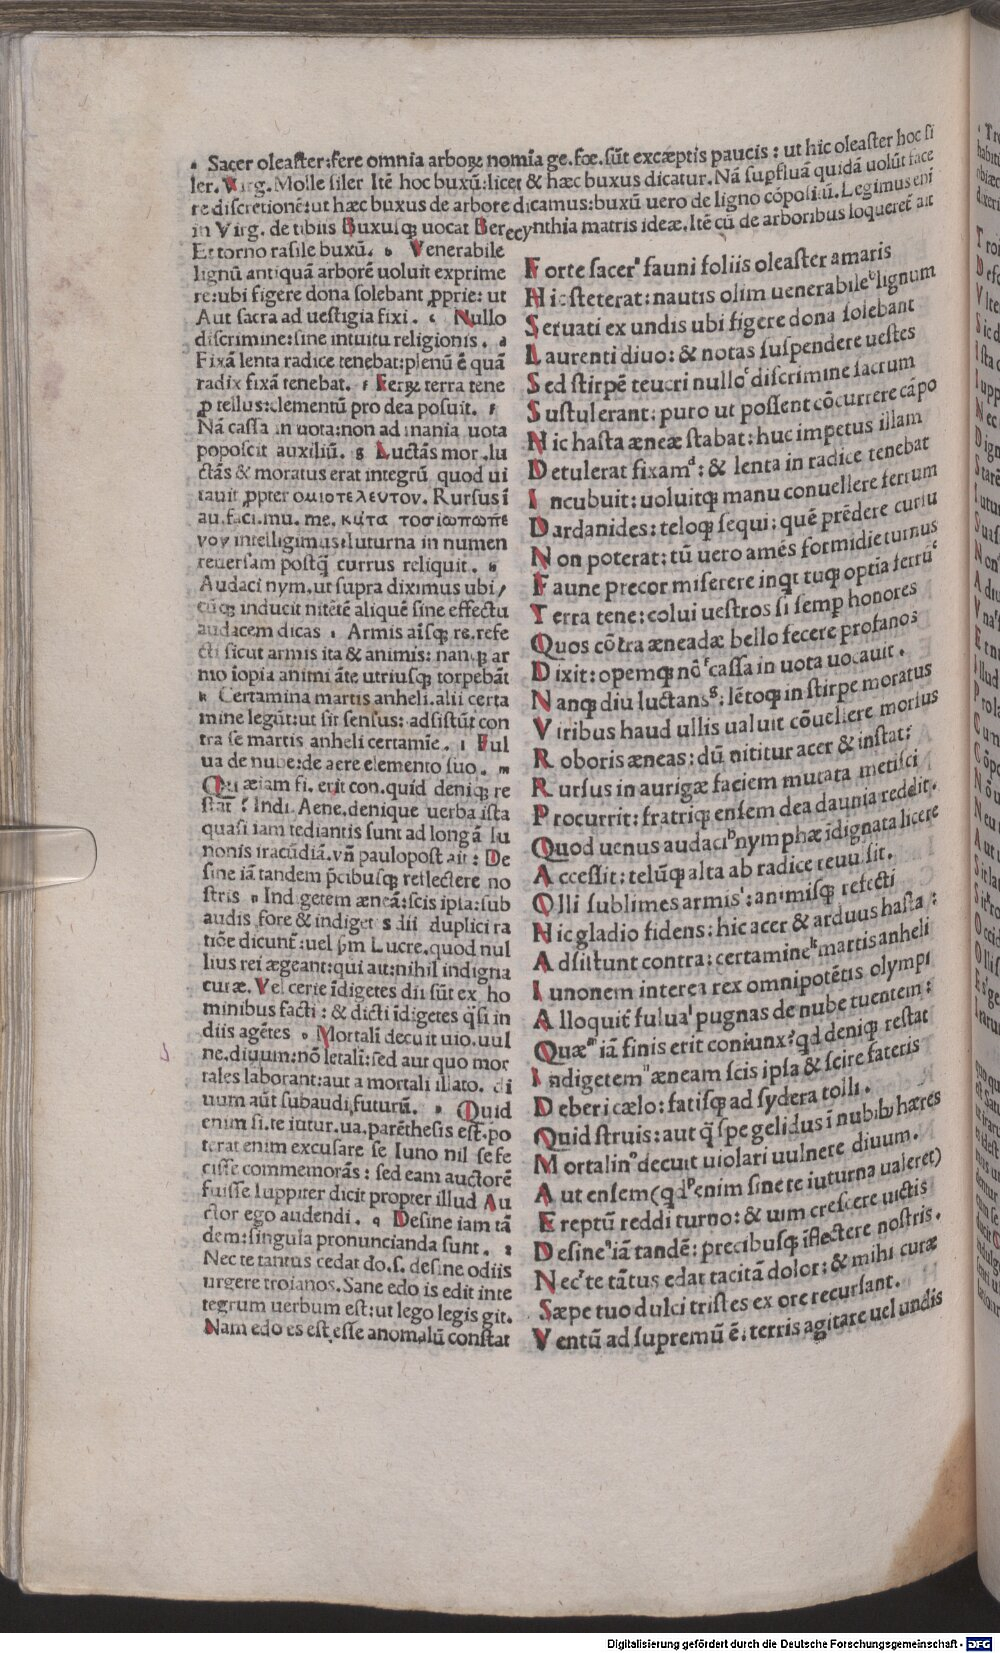 ª Sacer oleaſter:fere omnia arboꝝ nomīa ge.fœ.ſūt excæptis paucis : ut hic oleaſter hoc ſi
ler. Virg. Molle ſiler Itē hoc buxū:licet & hæc buxus dicatur. Nā ſuꝑfluā quidā uolūt face
re diſcretionē:ut hæc buxus de arbore dicamus:buxū uero de ligno cōpoſitū. Legimus eni
in Virg. de tibiis Buxuſꝗ uocat Berecynthia matris ideæ. Itē cū de arboribus loqueret̄ ait
Et torno raſile buxū. b Venerabile
lignū antiquā arborē uoluit exprime
re:ubi figere dona ſolebant ꝓprie: ut
Aut ſacra ad ueſtigia fixi. c Nullo
diſcrimine:ſine intuitu religionis. d
Fixā lenta radice tenebat:plenū ē quā
radix fixā tenebat. e Ferrꝝ terra tene
ꝓ tellus:elementū pro dea poſuit. f
Nā caſſa in uota:non ad inania uota
popoſcit auxiliū. g Luctās mor.lu
ctās & moratus erat integrū quod ui
tauit ꝓpter ομιοτελευτον. Rurſus ī
au.faci.mu. me. κατα τοσιωπωπε
νον intelligimus:Iuturna in numen
reuerſam poſtꝗ̄ currus reliquit. h
Audaci nym.ut ſupra diximus ubi
cūꝗ inducit nitētē aliquē ſine effectu
audacem dicas i Armis aīſꝗ re.refe
cti ſicut armis ita & animis: nanꝗ ar
mo īopia animi āte utriuſꝗ torpebāt
k Certamina martis anheli.alii certa
mine legūt:ut ſit ſenſus: adſiſtūt con
tra ſe martis anheli certamīe. l Ful
ua de nube:de aere elemento ſuo. m
Quæ iam fi. erit con.quid deniꝗ re
ſtat ? Indi. Aene.denique uerba iſta
quaſi iam tediantis ſunt ad longā Iu
nonis iracūdiā.vñ paulopoſt ait : De
ſine iā tandem p̄cibuſꝗ reflectere no
ſtris n Indigetem æneā:ſcis ipſa:ſub
audis fore & indigetes dii duplici ra
tiōe dicunt̄:uel ẜm Lucre.quod nul
lius rei ægeant:qui ait:nihil indigna
curæ. Vel certe īdigetes dii ſūt ex ho
minibus facti : & dicti īdigetes q̄ſi in
diis agētes o Mortali decuit uio.uul
ne.diuum:nō letali:ſed aut quo mor
tales laborant:aut a mortali illato. di
uum aūt ſubaudi,futurū. p Quid
enim ſi.te iutur.ua.parētheſis eſt.po
terat enim excuſare ſe Iuno nil ſe fe
ciſſe commemorās : ſed eam auctorē
fuiſſe Iuppiter dicit propter illud Au
ctor ego audendi. q Deſine iam tā
dem:ſingula pronuncianda ſunt. r
Nec te tantus cedat do.ſ. deſine odiis
urgere troianos. Sane edo is edit inte
tegrum uerbum eſt:ut lego legis git.
Nam edo es eſt eſſe anomalū conſtat
Forte ſacerª fauni foliis oleaſter amaris
Hic ſteterat: nautis olim uenerabileᵇ lignum
Seruati ex undis ubi figere dona ſolebant
Laurenti diuo: & notas ſuſpendere ueſtes
Sed ſtirpē teucri nulloᶜ diſcrimine ſacrum
Suſtulerant: puro ut poſſent cōcurrere cāpo
Hic haſta æneæ ſtabat: huc impetus illam
Detulerat fixamᵈ: & lenta in radice tenebat
Incubuit: uoluitꝗ manu conuellere ferrum
Dardanides: teloꝗ ſequi: quē prēdere curſu
Non poterat: tū uero amēs formidie turnus
Faune precor miſerere inqt tuꝗ optīa ferrūᵉ
Terra tene: colui ueſtros ſi ſemꝑ honores
Quos cōtra æneadæ bello fecere profanos
Dixit: opemꝗ nōᶠ caſſa in uota uocauit.
Nanꝗ diu luctansᵍ: lētoꝗ in ſtirpe moratus
Viribus haud ullis ualuit cōuellere morſus
Roboris æneas: dū nititur acer & inſtat:
Rurſus in aurigæ faciem mutata metiſci
Procurrit: fratriꝗ enſem dea daunia reddit.
Quod uenus audaciʰ nymphæ īdignata licere
Acceſſit: telūꝗ alta ab radice reuulſit.
Olli ſublimes armisⁱ: animiſꝗ refecti
Hic gladio fidens: hic acer & arduus haſta:
Adſiſtunt contra: certamineᵏ martis anheli
Iunonem interea rex omnipotētis olympi
Alloquit̄ fuluaˡ pugnas de nube tuentem:
Quæᵐ iā finis erit coniunx? qd deniꝗ reſtat
Indigetemⁿ æneam ſcis ipſa & ſcire fateris
Deberi cælo: fatiſꝗ ad ſydera tolli.
Quid ſtruis: aut q̄ ſpe gelidus ī nubibꝰ hæres
Mortalinᵒ decuit uiolari uulnere diuum.
Aut enſem(qdᵖ enim ſine te iuturna ualeret)
Ereptū reddi turno: & uim creſcere uictis
Deſineᑫ iā tandē: precibuſꝗ īflectere noſtris.
Necʳ te tātus edat tacitā dolor: & mihi curæ
Sæpe tuo dulci triſtes ex ore recurſant.
Ventū ad ſupremū ē: terris agitare uel undis
Digitalisierung gefördert durch die Deutsche Forschungsgemeinschaft - DFG